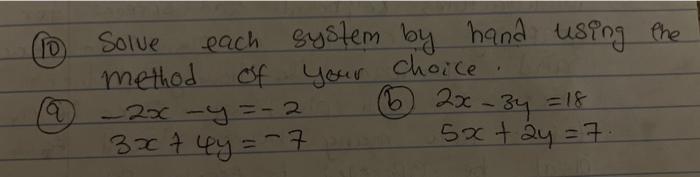 (10) Solve each system by hand using the
method of your choice.
(a) -2x - y = -2 (b) 2x - 3y = 18
3x + 4y = -7 5x + 2y = 7.